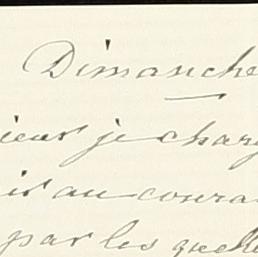 Dimanche
ieur je charg
ir au coura
par les quel